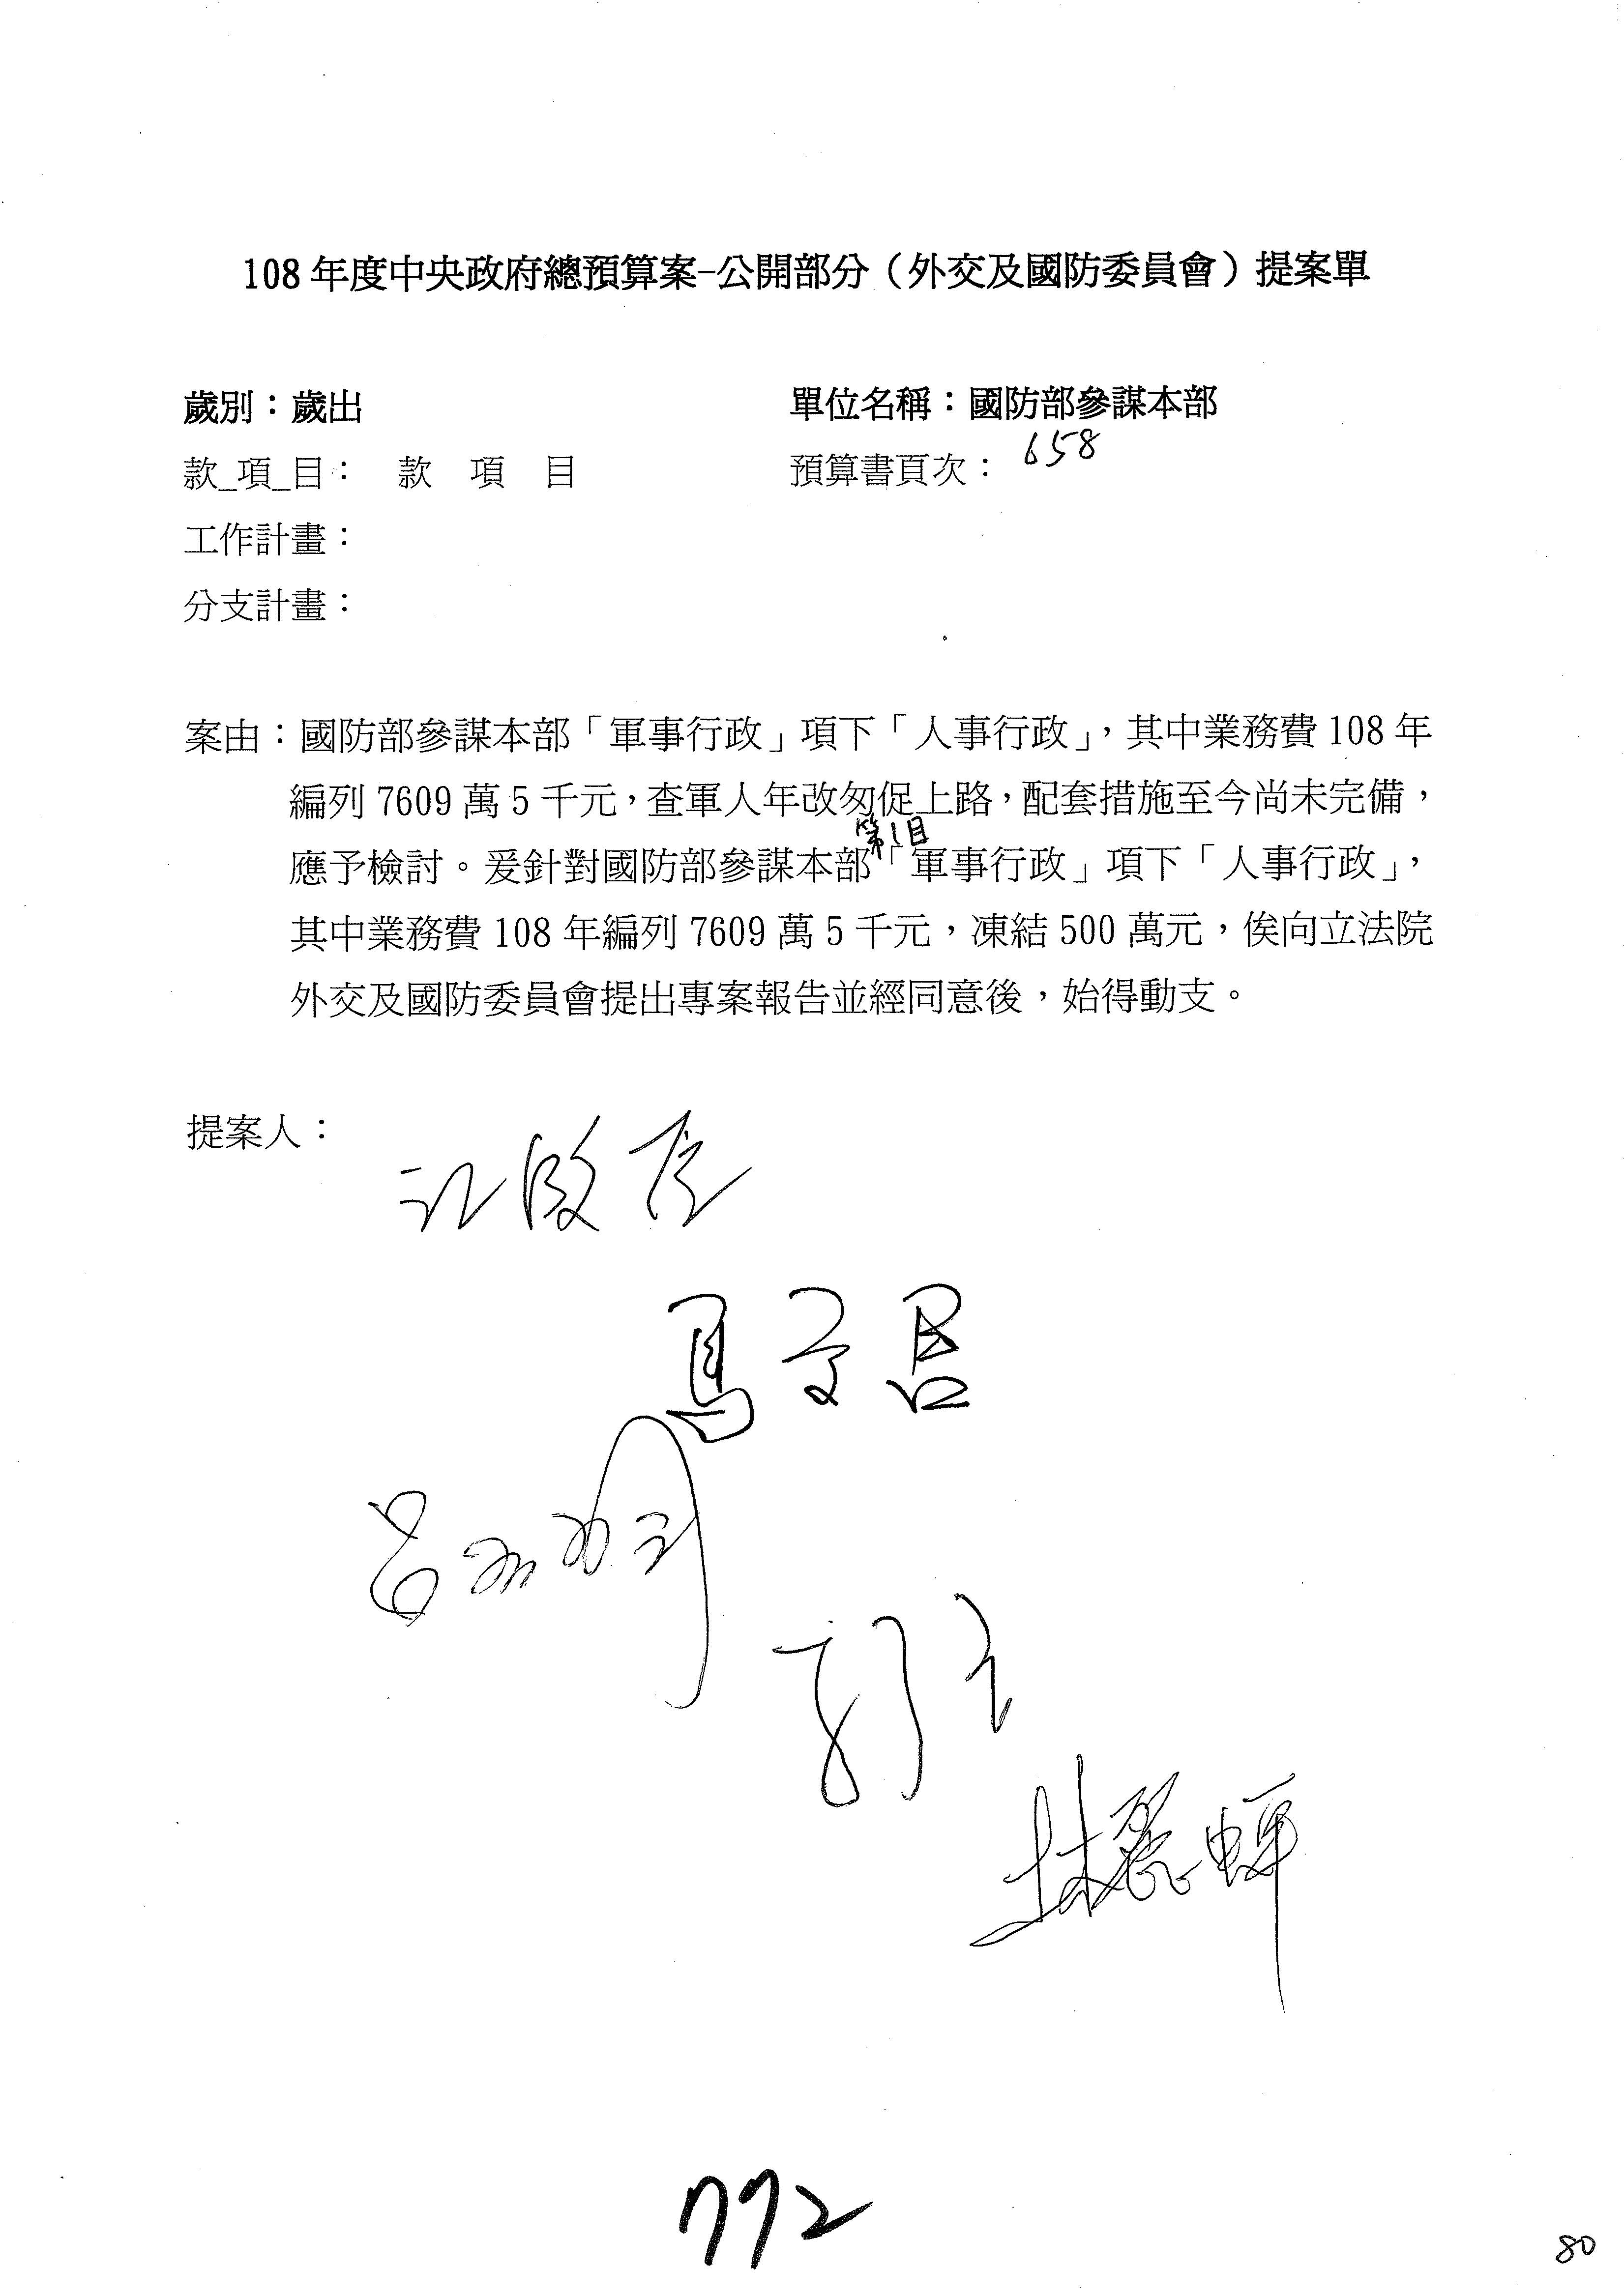 108年度中央政府總預算案-公開部分（外交及國防委員會）提案單
歲別：歲出 單位名稱：國防部參謀本部
款_項_目： 款 項 目 預算書頁次：658
工作計畫：
分支計畫：
案由：國防部參謀本部「軍事行政」項下「人事行政」，其中業務費108年
編列7609萬5千元，查軍人年改匆促上路，配套措施至今尚未完備，
第1目
應予檢討。爰針對國防部參謀本部「軍事行政」項下「人事行政」，
其中業務費108年編列7609萬5千元，凍結500萬元，俟向立法院
外交及國防委員會提出專案報告並經同意後，始得動支。
提案人：
江啟臣
馬文君
呂玉玲
林麗蟬
772
80